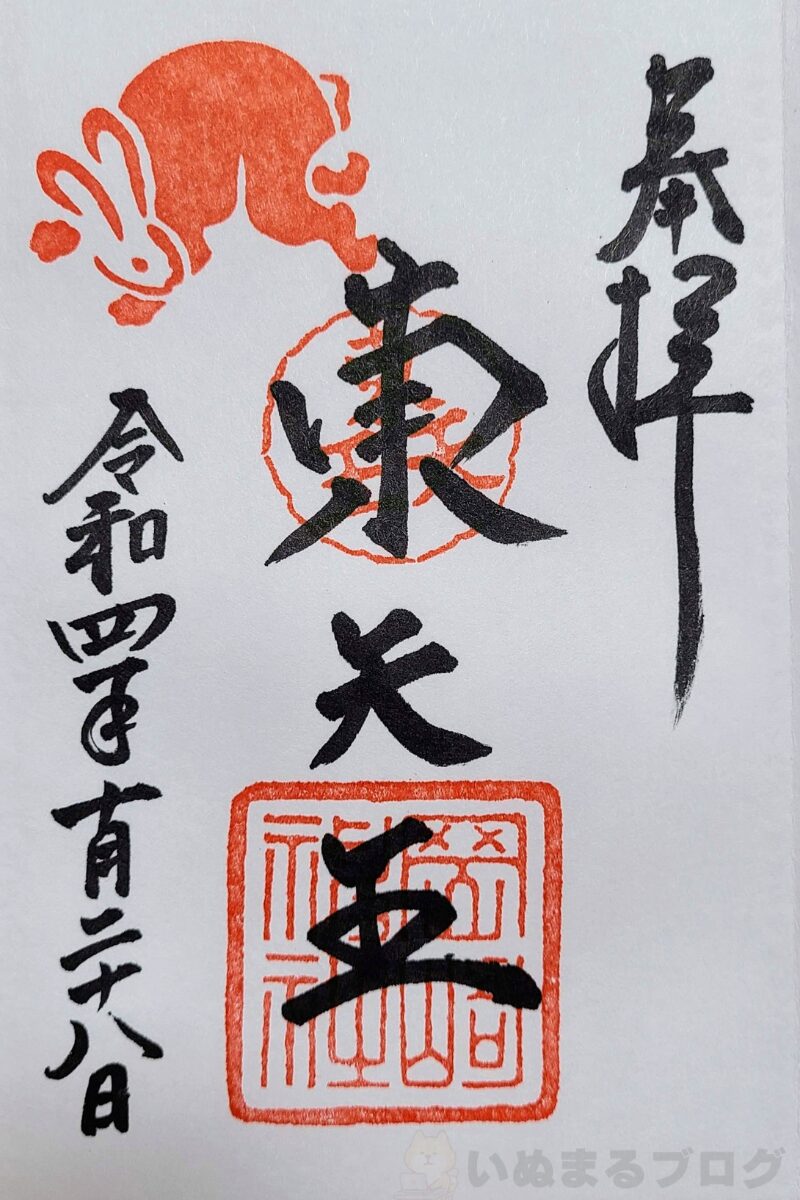 奉拝
東天王
岡崎
神社
令和四年十月二十八日
いぬまるブログ